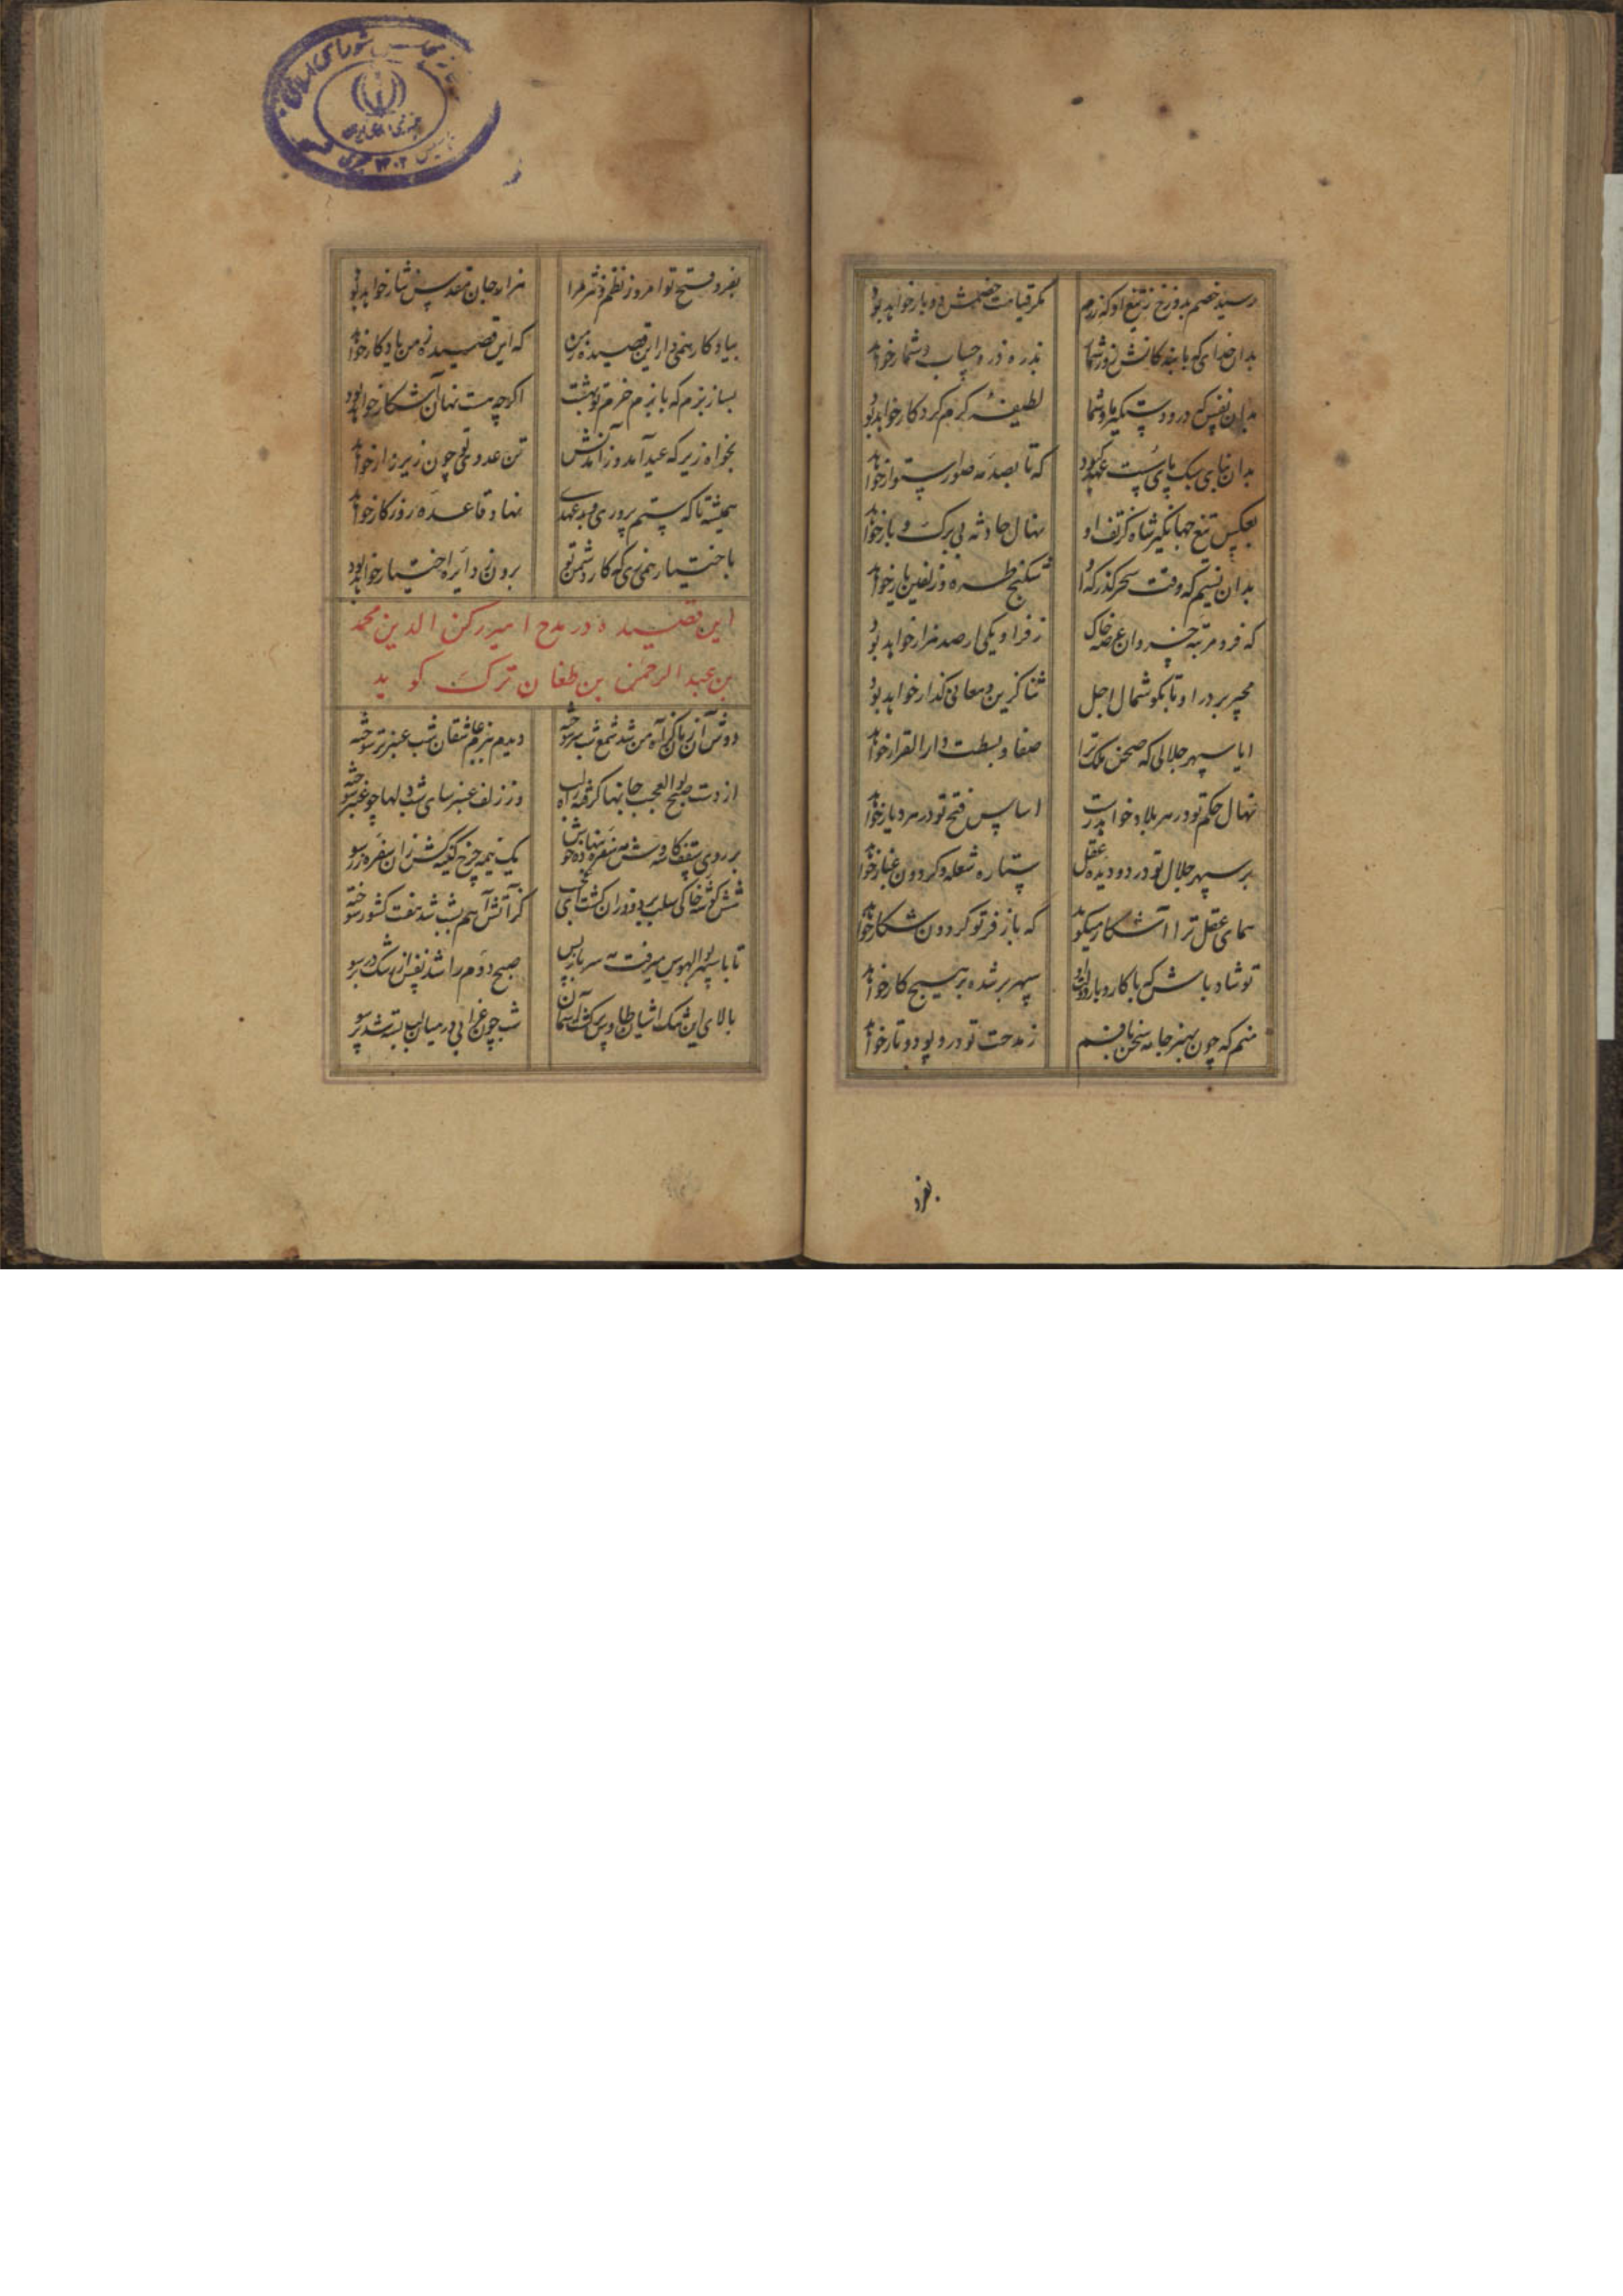 رسید خصم بدوزخ ز تیغ او که رزم مکر قیامت خصمش دوبار خواهد بود
بدان خدای که با بندکانش روز شمار بذره ذره حساب و شمار خواهد
بدان نفس که درود دستکیر ما و شما لطیفه کرم کردکار خواهد بود
بدان بنای سبک پای پست کبود که تا بصدمه صور استوار خواهد
بعکس تیغ جهانکیر شاه کز تف او نهال حادثه بی برک و بار خواهد
بدان نسیم که وقت سحر کذر که او شکنج طره و زلفین یار خواهد
که فر و مرتبه خسروان عرصه خاک ز فر او یکی ار صد هزار خواهد بود
بر در او تا بکو شمال اجل ثنا کزین و معانی کذار خواهد بود
ایا سپهر جلالی که صحن ملک ترا صفا و بسطت دار القرار خواهد
نهال حکم تو در هر بلاد خواهد رست اساس فتح تو در هر دیار خواهد
بر سپهر جلال تو در دو دیده عقل ستاره شعله و کردون غبار خواهد
همای عقل ترا آشکار میکوید که باز فر تو کردون شکار خواهد
تو شاه باش که با کار و بار دولت تو سپهر بر شده بر هیچ کار خواهد
منم که چون بهنر جامه سخن بافم ز مدحت تو درو پود و تار خواهد
بفرد
بفر و فتح تو امروز نظم و نثر مرا هزار جان مقدس نثار خواهد بود
بیادکار همی دار این قصیده ز من که این قصیده ز من یادکار خواهد
بساز بزم که با بزم خرم تو بهشت اکرچه هست نهان آشکار خواهد بود
بخواه زیر که عید آمد و ز آمدنش تن عدوی تو چون زیر زار خواهد
همیشه تا که ستم پروری و بدعهدی نهاد و قاعده روزکار خواهد
باختیار همی زی که کار دشمن تو برون ز دایره اختیار خواهد بود
این قصیده در مدح امیر رکن الدین محمد
بن عبد الرحمن بن طغان ترک کوید
دوش آن زمان کز آه من شد شمع شب سر سوخته دیدم ببزم عاشقان شب عنبر تر سوخته
از دست صبح بوالعجب جانها کرفته راه لب وز زلف عنبرسای شب دلها چو عنبر سوخته
بر روی سقف کاسه وش یک نیمه چرخ کینه کش زان سفره زر سوخته
شش کوشه خاکی سلب پر دود زان کشت ای عجب کز آتش آهم بشب شد هفت کشور سوخته
تا با سپهر بوالهوس میرفت سر باز پس صبح دوم را شد نفس از رشک در بر سوخته
بالای این مشک آشیان طاوس کشت آسمان شب چون غرابی در میان لب بسته شد پر سوخته